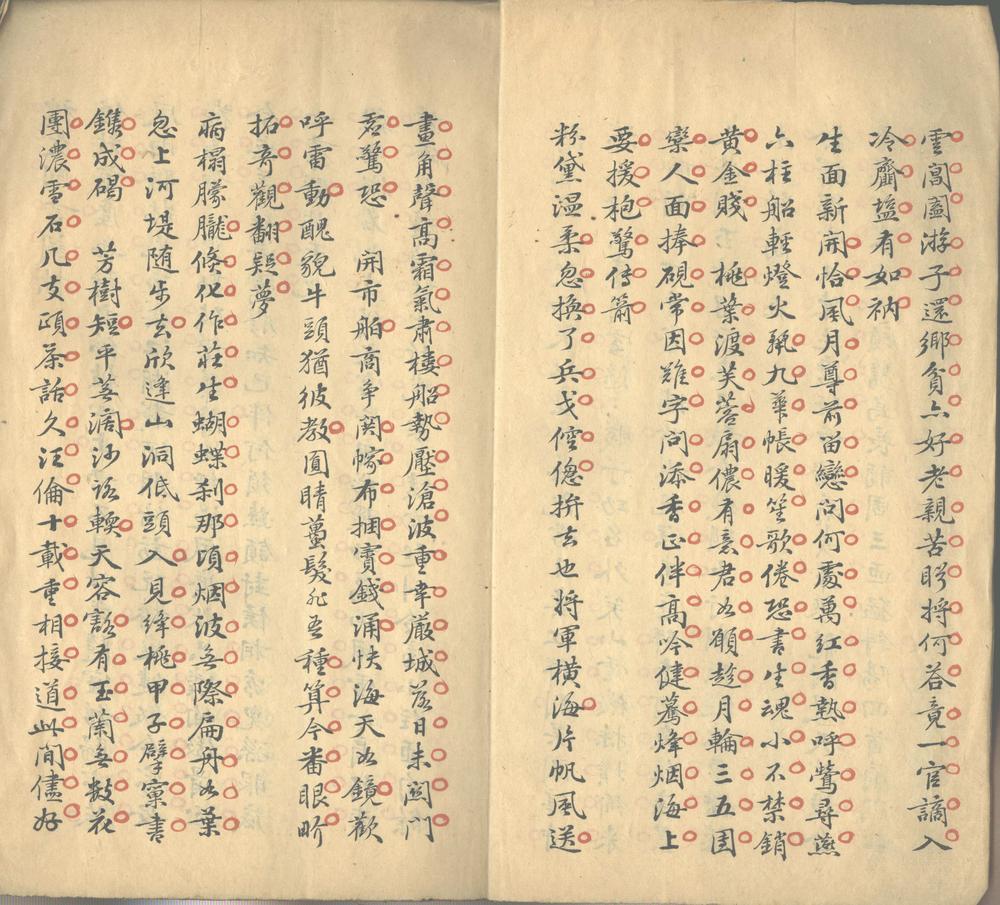 雲閶闔游子還鄉貧亦好老親苦盼將何荅竟一官謫入
冷齏塩有如衲
生面新開恰風月尊前留戀問何處萬紅香熟呼鶯尋燕
六柱船輕燈火鬧九華帳暖笙歌倦恐書生魂小不禁銷
黄金賤 桃葉渡芙蓉扇儂有意君如願趁月輪三五團
欒人面捧硯常因難字問添香正伴高吟健驀烽烟海上
要援枹驚傳箭
粉黛温柔忽換了兵戈倥傯拚去也將軍橫海片帆風送
畫角聲高霜氣肅樓船勢壓滄波重幸嚴城落日未關門
君驚恐 開市舶商争閧幪布捆寳錢涌快海天如鏡歡
呼雷動醜貌牛頭猶彼教圓睛蠆髮非吾種算今番眼界
拓奇觀翻疑夢
病榻朦朧倏化作莊生蝴蝶刹那頃烟波無際扁舟如葉
忽上河堤隨步去欣逢山洞低頭入見絳桃甲子擘窠書
鐫成碣 芳樹短平蕪濶沙路輭天容豁有玉蘭無數花
團濃雪石几支頤茶話久汪倫十載重相接道此間儘好